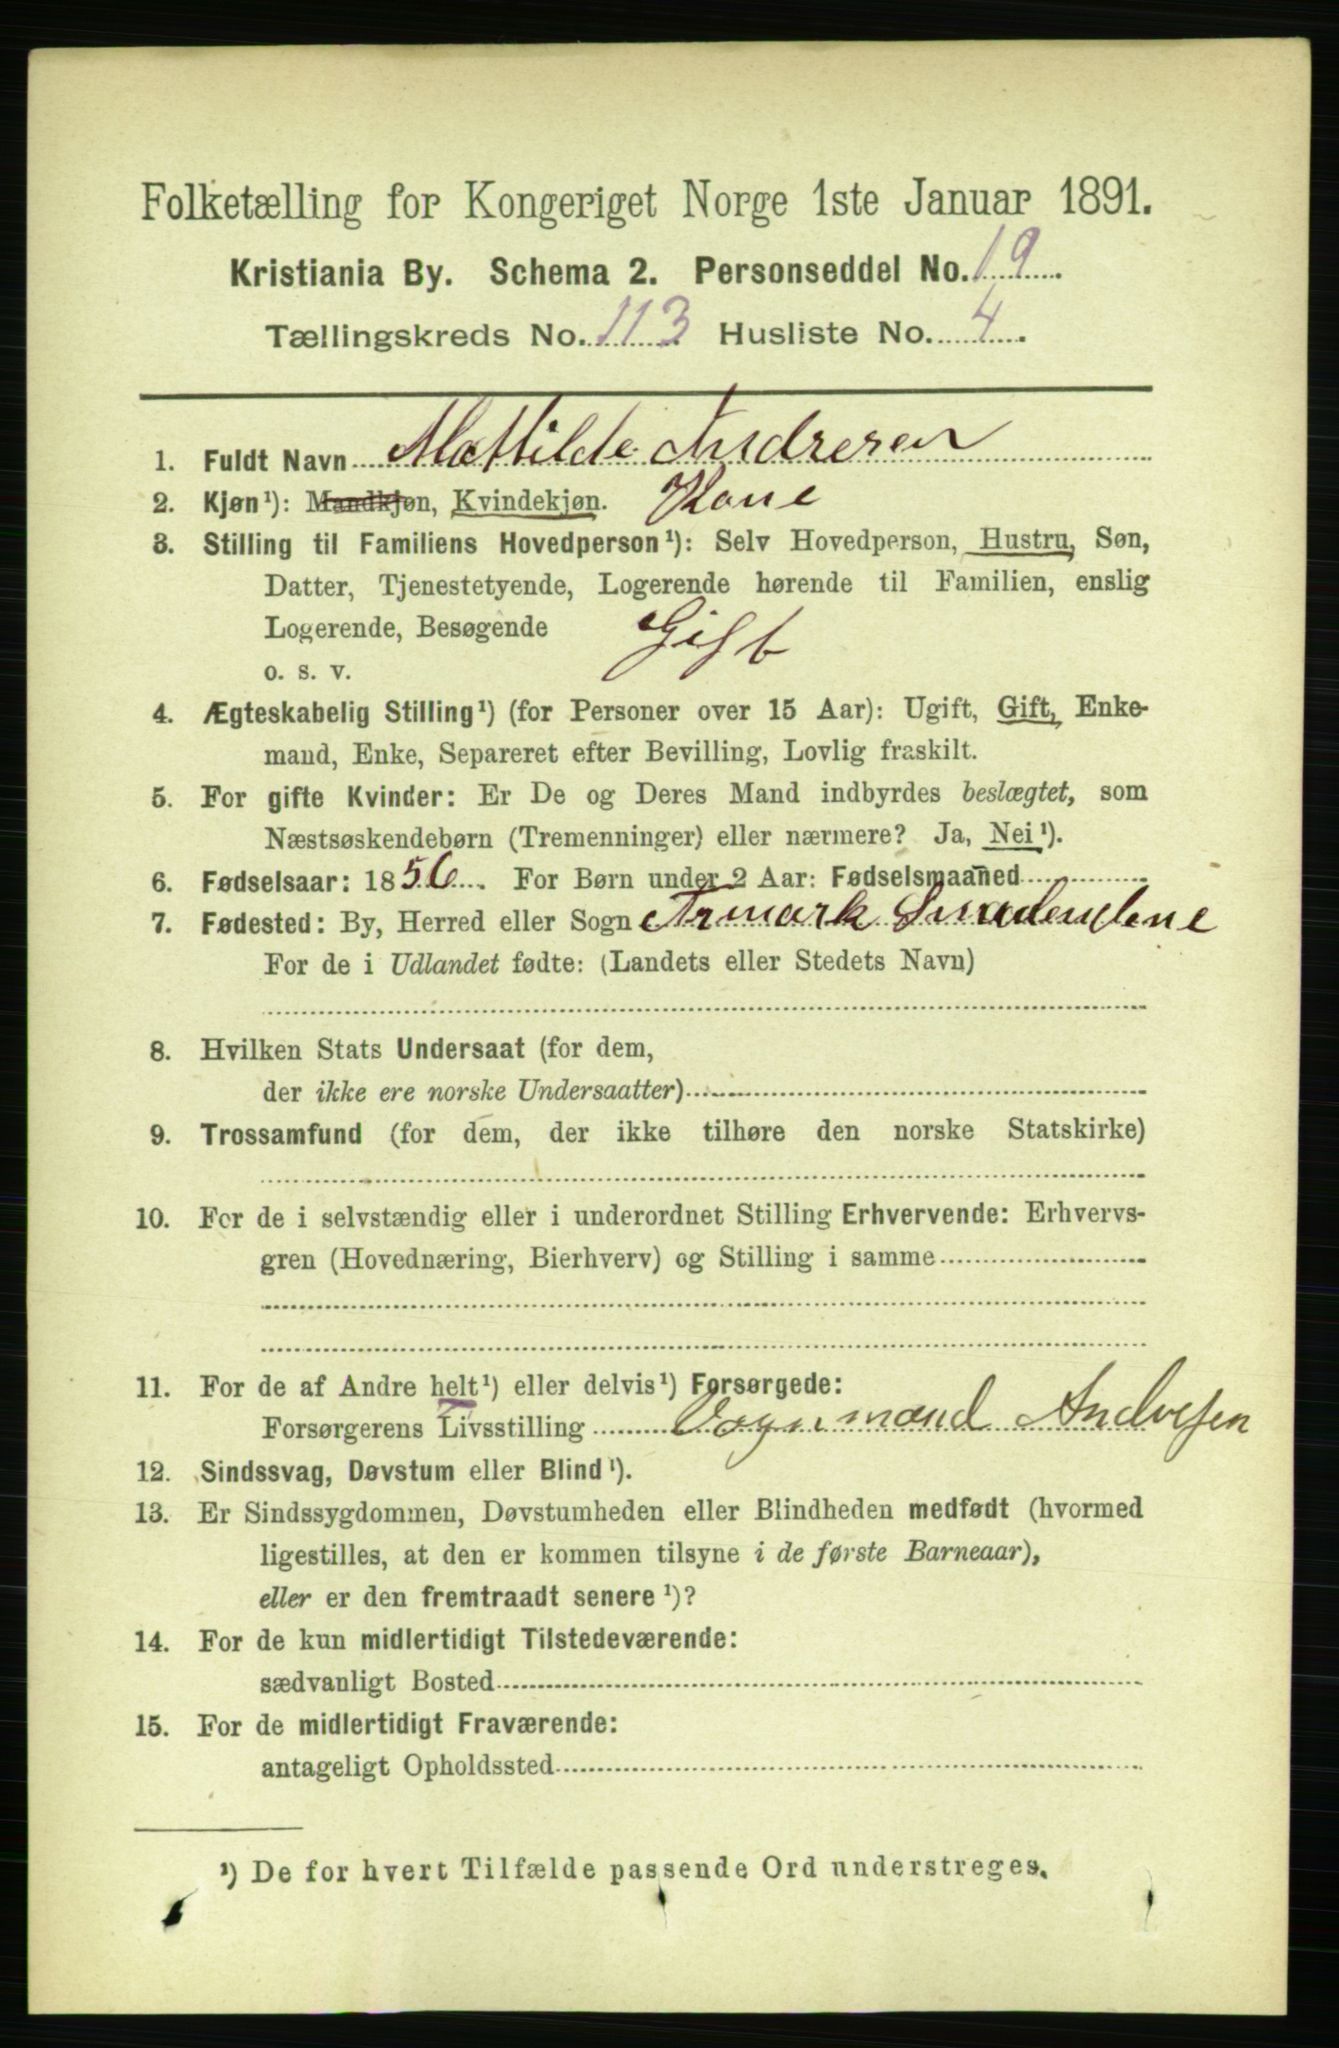 Folketælling for Kongeriget Norge 1ste Januar 1891.
Kristiania By. Schema 2. Personseddel No. 19.
Tællingskreds No. 113 Husliste No. 4.
1. Fuldt Navn Mathilde Andresen
2. Kjøn¹): Mandkjøn, Kvindekjøn. Kone
3. Stilling til Familiens Hovedperson¹): Selv Hovedperson, Hustru, Søn,
Datter, Tjenestetyende, Logerende hørende til Familien, enslig
Logerende, Besøgende Gift
o. s. v.
4. Ægteskabelig Stilling¹) (for Personer over 15 Aar): Ugift, Gift, Enke-
mand, Enke, Separeret efter Bevilling, Lovlig fraskilt.
5. For gifte Kvinder: Er De og Deres Mand indbyrdes beslægtet, som
Næstsøskendebørn (Tremenninger) eller nærmere? Ja, Nei¹).
6. Fødselsaar: 1856. For Børn under 2 Aar: Fødselsmaaned
7. Fødested: By, Herred eller Sogn Armark Smaalenene
For de i Udlandet fødte: (Landets eller Stedets Navn)
8. Hvilken Stats Undersaat (for dem,
der ikke ere norske Undersaatter)
9. Trossamfund (for dem, der ikke tilhøre den norske Statskirke)
10. For de i selvstændig eller i underordnet Stilling Erhvervende: Erhvervs-
gren (Hovednæring, Bierhverv) og Stilling i samme
11. For de af Andre helt¹) eller delvis¹) Forsørgede:
Forsørgerens Livsstilling Vognmand Andresen
12. Sindssvag, Døvstum eller Blind¹).
13. Er Sindssygdommen, Døvstumheden eller Blindheden medfødt (hvormed
ligestilles, at den er kommen tilsyne i de første Barneaar),
eller er den fremtraadt senere¹)?
14. For de kun midlertidigt Tilstedeværende:
sædvanligt Bosted
15. For de midlertidigt Fraværende:
antageligt Opholdssted
¹) De for hvert Tilfælde passende Ord understreges.